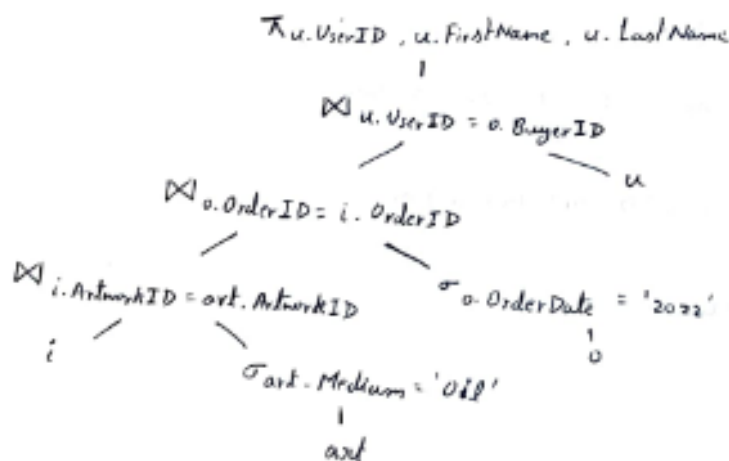 π u.UserID , u.FirstName , u.LastName
⋈ u.UserID = o.BuyerID
u
⋈ o.OrderID = i.OrderID
⋈ i.ArtworkID = art.ArtworkID
σ o.OrderDate = '2022'
i
o
σ art.Medium = 'Oil'
art